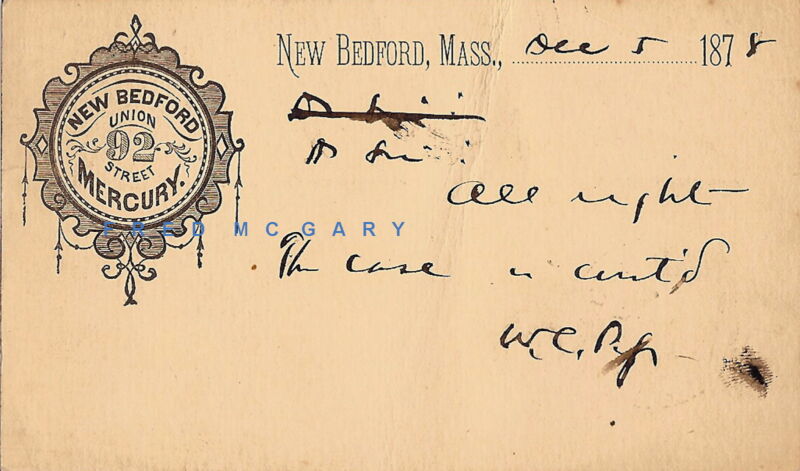 NEW BEDFORD
UNION
92
STREET
MERCURY.
NEW BEDFORD, MASS., Dec 5 1878
D Sir:
D Sir:
All right
The case is cont'd
W.C.
FRED MCGARY